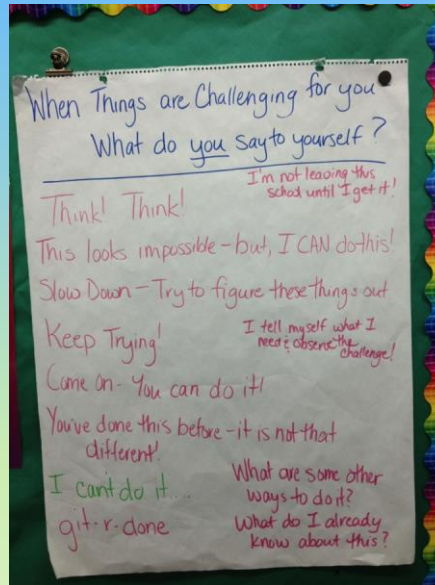 When Things are Challenging for you
What do you say to yourself?
I'm not leaving this
school until I get it!
Think! Think!
This looks impossible - but, I CAN do this!
Slow Down - Try to figure these things out
Keep Trying!
I tell myself what I
need & observe the
challenge!
Come on - You can do it!
You've done this before - it is not that
different!
I can't do it...
git-r-done
What are some other
ways to do it?
What do I already
know about this?